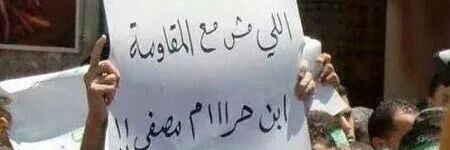 اللي مش مع المقاومة
ابن حراااام مصفي !!